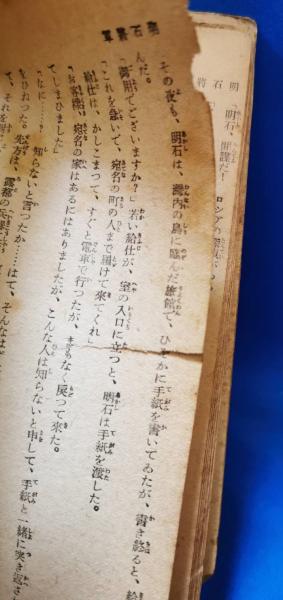 明石將軍
その夜も、明石は、灣内の島に臨んだ旅館で、ひそかに手紙を書いてゐたが、書き終ると、給
んだ。
「御用でございますか？」若い給仕が、室の入口に立つと、明石は手紙を渡した。
「これを急いで、宛名の町の人まで屆けて來てくれ」
給仕は、かしこまつて、すぐと電車で行つたが、間もなく戻つて來た。
「お客樣、宛名の家はあるにはありましたが、こんな人は知らないと申して、手紙と一緒に突き返さ
てしまひました」
「なに……？　知らないと言つたか……はて、そんなは
をひねつた。先方は、露都の
て、それを
明石
將
「明石、間諜だ！
ロシアの